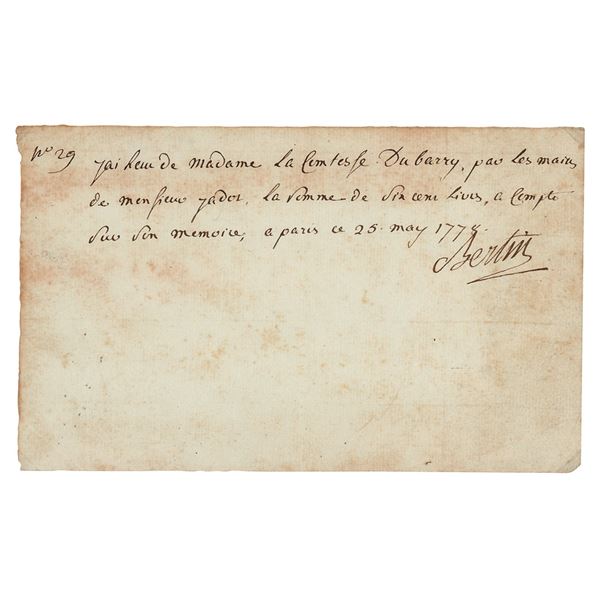 No 29 jai Recu de madame La Comtesse Dubarry, par les mains
de monsieur jador, la somme de Sin cent Livres, a Compte
Sur Son memoire, a paris ce 25. may 1778.
Bertin